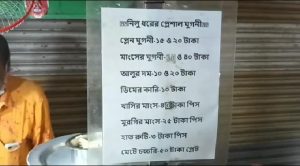 নিলু ধরের স্পেশাল ঘুগনী
প্লেন ঘুগনী-১৫ ও ২০ টাকা
মাংসের ঘুগনী- ও ৪০ টাকা
আলুর দম-১০ ও ২০ টাকা
ডিমের কারি-১০ টাকা
খাসির মাংস- টাকা পিস
মুরগির মাংস-২৫ টাকা পিস
হাত রুটি-৩ টাকা পিস
মেটে চচ্চরি-৫০ টাকা প্লেট